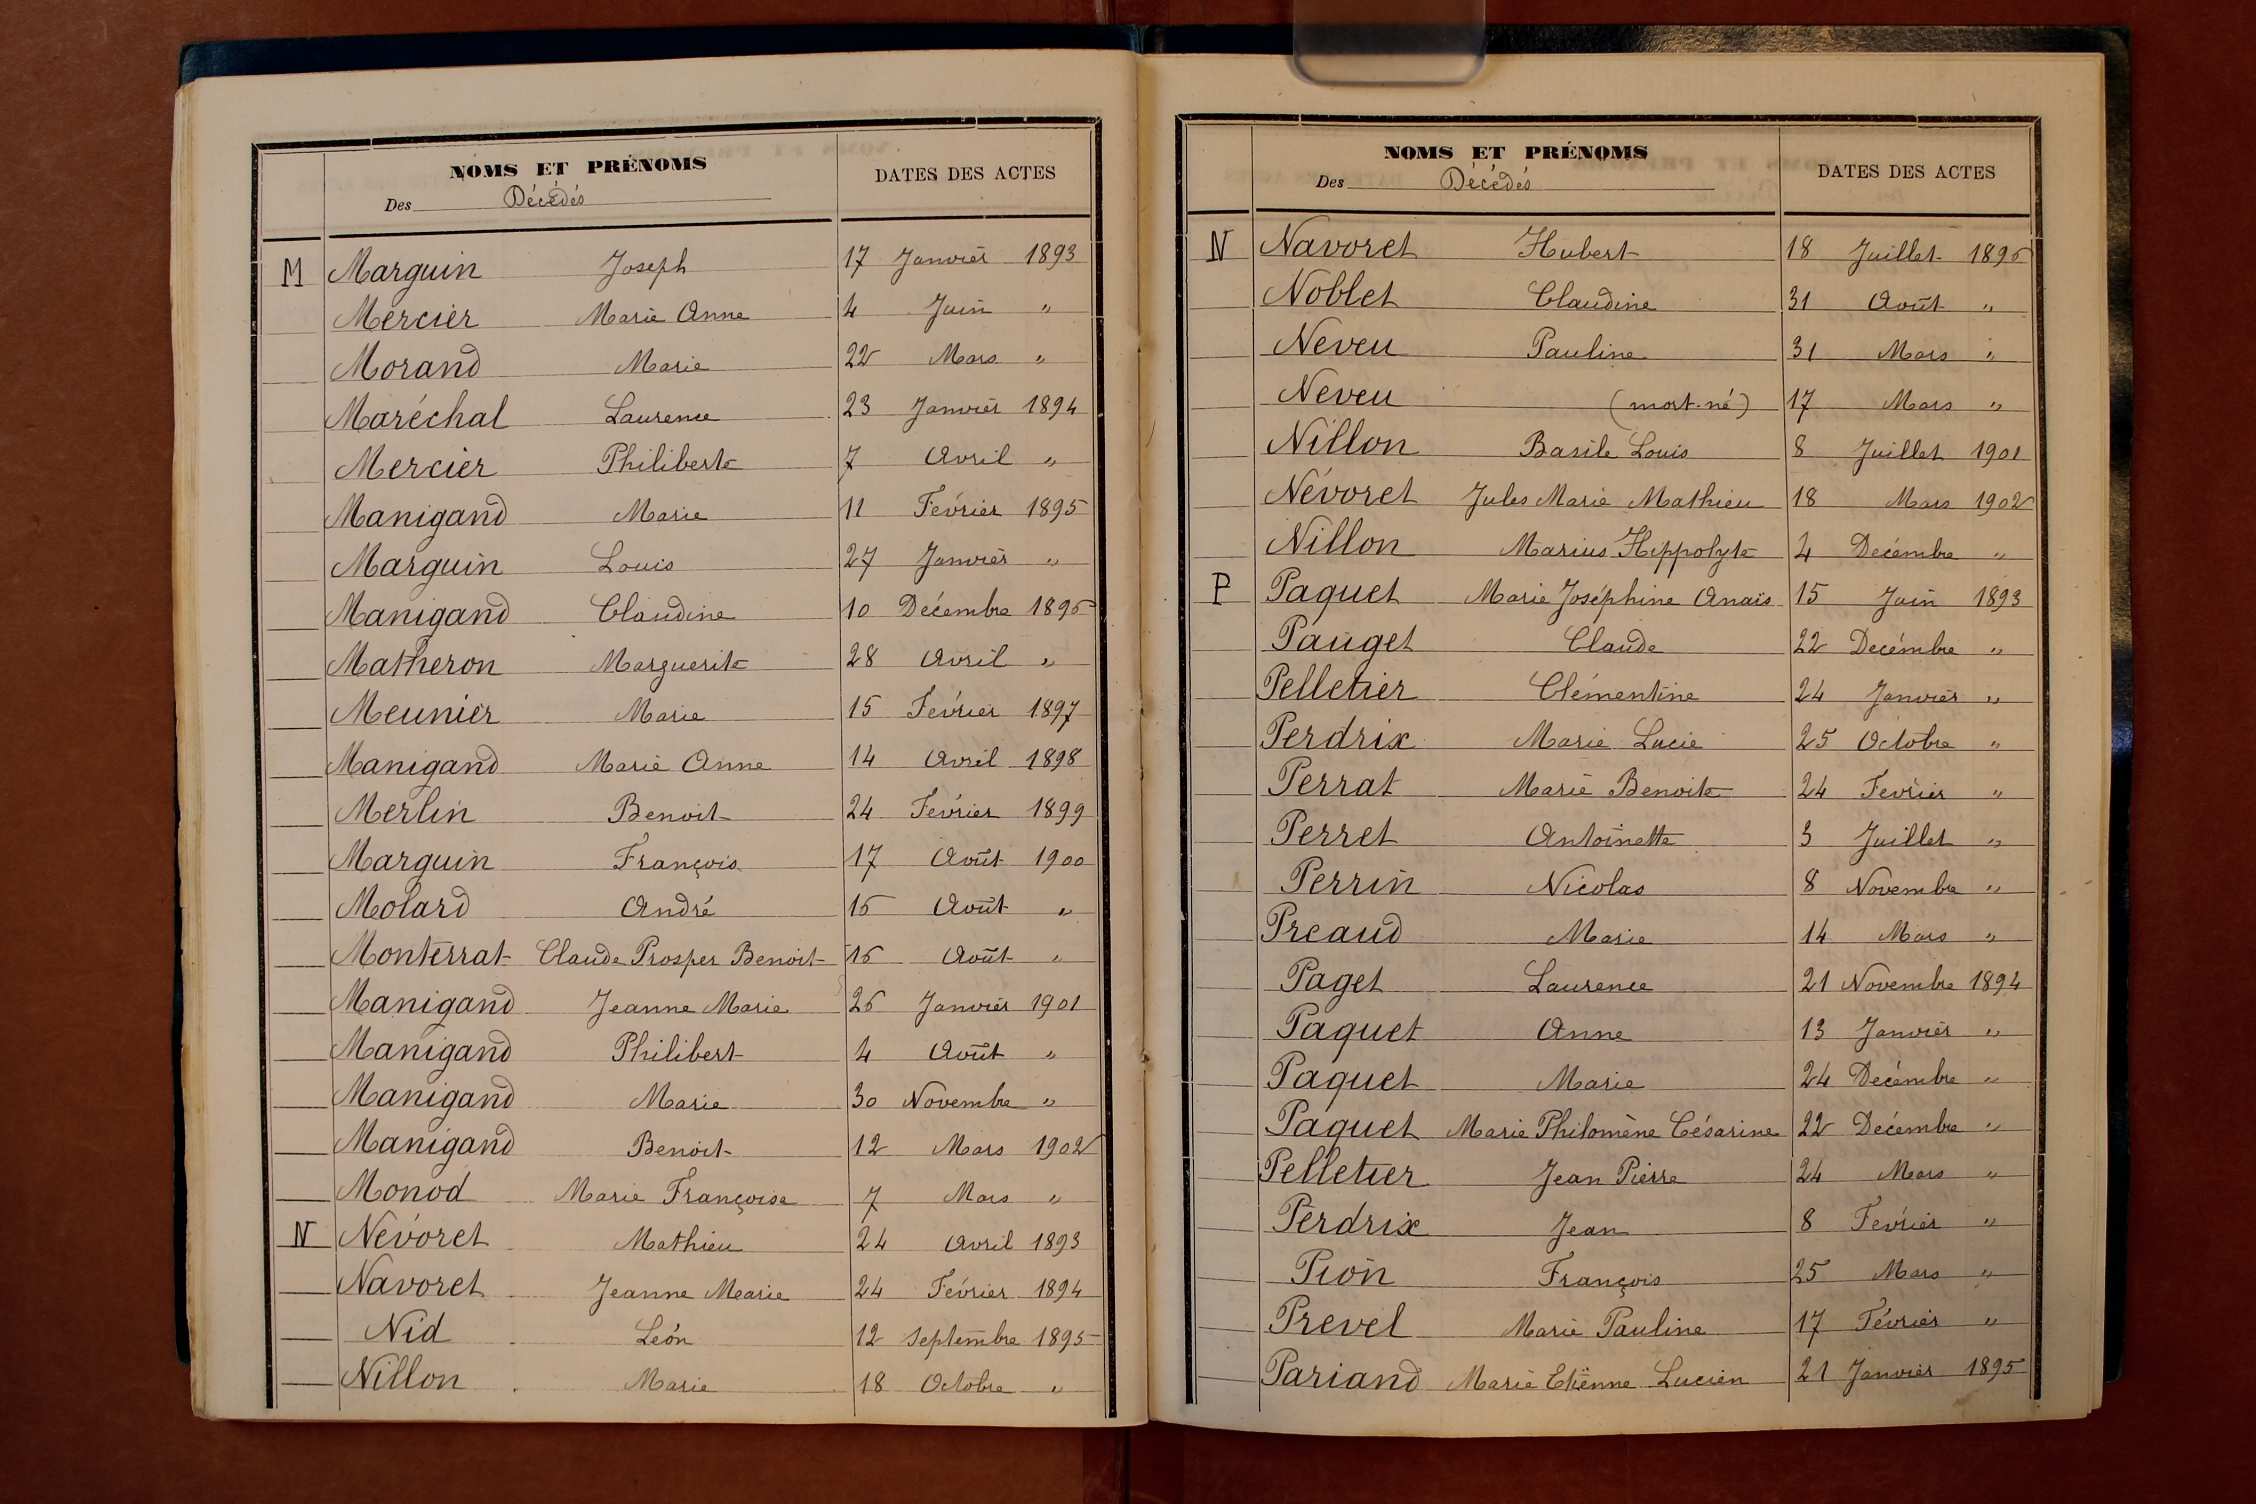 NOMS ET PRÉNOMS
Des Décédés
DATES DES ACTES
M Marguin Joseph 17 Janvier 1893
Mercier Marie Anne 4 Juin "
Morand Marie 22 Mars "
Maréchal Laurence 23 Janvier 1894
Mercier Philiberte 7 Avril "
Manigand Marie 11 Février 1895
Marguin Louis 27 Janvier "
Manigand Claudine 10 Décembre 1896
Matheron Marguerite 28 Avril "
Meunier Marie 15 Février 1897
Manigand Marie Anne 14 Avril 1898
Merlin Benoit 24 Février 1899
Marguin François 17 Août 1900
Molard André 16 Août "
Monterrat Claude Prosper Benoit 16 Août "
Manigand Jeanne Marie 26 Janvier 1901
Manigand Philibert 4 Août "
Manigand Marie 30 Novembre "
Manigand Benoit 12 Mars 1902
Monod Marie Françoise 7 Mars "
N Névoret Mathieu 24 Avril 1893
Navoret Jeanne Marie 24 Février 1894
Nid Léon 12 Septembre 1895
Nillon Marie 18 Octobre "
NOMS ET PRÉNOMS
Des Décédés
DATES DES ACTES
N Navoret Hubert 18 Juillet 1896
Noblet Claudine 31 Août "
Neveu Pauline 31 Mars "
Neveu (mort-né) 17 Mars "
Nillon Basile Louis 8 Juillet 1901
Névoret Jules Marie Mathieu 18 Mars 1902
Nillon Marius Hippolyte 4 Decémbre "
P Paquet Marie Joséphine Anaïs 15 Juin 1893
Pauget Claude 22 Decémbre "
Pelletier Clémentine 24 Janvier "
Perdrix Marie Lucie 25 Octobre "
Perrat Marie Benoite 24 Fevrier "
Perret Antoinette 3 Juillet "
Perrin Nicolas 8 Novembre "
Preaud Marie 14 Mars "
Paget Laurence 21 Novembre 1894
Paquet Anne 13 Janvier "
Paquet Marie 24 Decémbre "
Paquet Marie Philomène Césarine 22 Décembre "
Pelletier Jean Pierre 24 Mars "
Perdrix Jean 8 Fevrier "
Pion François 25 Mars "
Prevel Marie Pauline 17 Février "
Pariand Marie Etienne Lucien 21 Janvier 1895